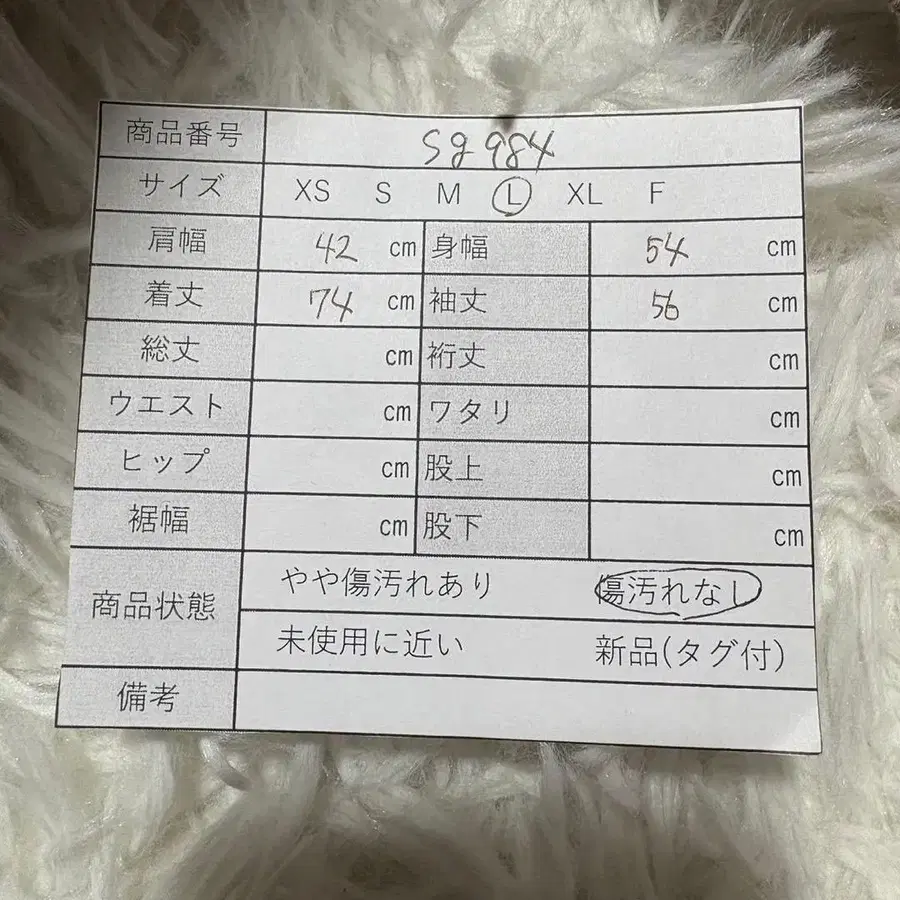 商品番号 sg 984
サイズ XS S M L XL F
肩幅 42 cm 身幅 54 cm
着丈 74 cm 袖丈 56 cm
総丈 cm 裄丈 cm
ウエスト cm ワタリ cm
ヒップ cm 股上 cm
裾幅 cm 股下 cm
商品状態 やや傷汚れあり 傷汚れなし
未使用に近い 新品(タグ付)
備考